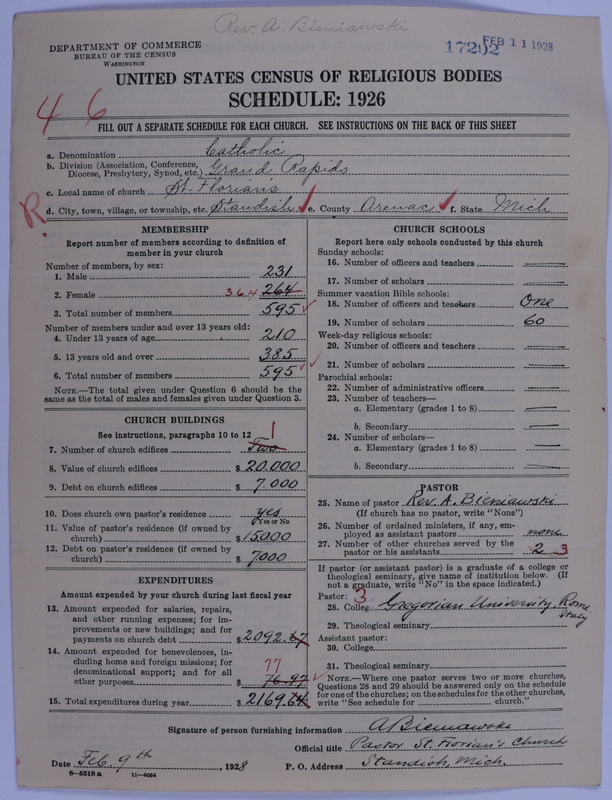 Rev. A. Bieniawski
DEPARTMENT OF COMMERCE
BUREAU OF THE CENSUS
WASHINGTON
17202 FEB 11 1928
UNITED STATES CENSUS OF RELIGIOUS BODIES
SCHEDULE: 1926
4 6
FILL OUT A SEPARATE SCHEDULE FOR EACH CHURCH. SEE INSTRUCTIONS ON THE BACK OF THIS SHEET
a. Denomination Catholic
b. Division (Association, Conference, Diocese, Presbytery, Synod, etc.) Grand Rapids
c. Local name of church St. Florian's
R.
d. City, town, village, or township, etc. Standish e. County Arenac f. State Mich
MEMBERSHIP
Report number of members according to definition of
member in your church
Number of members, by sex:
1. Male 231
2. Female 364 264
3. Total number of members 595
Number of members under and over 13 years old:
4. Under 13 years of age 210
5. 13 years old and over 385
6. Total number of members 595
NOTE.—The total given under Question 6 should be
same as the total of males and females given under Question 3.
CHURCH BUILDINGS
See instructions, paragraphs 10 to 12
7. Number of church edifices Two 1
8. Value of church edifices $20.000
9. Debt on church edifices $7.000
10. Does church own pastor's residence yes
Yes or No
11. Value of pastor's residence (if owned by
church) $15.000
12. Debt on pastor's residence (if owned by
church) $7000
EXPENDITURES
Amount expended by your church during last fiscal year
13. Amount expended for salaries, repairs,
and other running expenses; for im-
provements or new buildings; and for
payments on church debt $2092.67
14. Amount expended for benevolences, in-
cluding home and foreign missions; for
denominational support; and for all
other purposes $76.97 77
15. Total expenditures during year $2169.64
CHURCH SCHOOLS
Report here only schools conducted by this church
Sunday schools:
16. Number of officers and teachers
17. Number of scholars
Summer vacation Bible schools:
18. Number of officers and teachers One
19. Number of scholars 60
Week-day religious schools:
20. Number of officers and teachers
21. Number of scholars
Parochial schools:
22. Number of administrative officers
23. Number of teachers—
a. Elementary (grades 1 to 8)
b. Secondary
24. Number of scholars—
a. Elementary (grades 1 to 8)
b. Secondary
PASTOR
25. Name of pastor Rev. A. Bieniawski
(If church has no pastor, write "None")
26. Number of ordained ministers, if any, em-
ployed as assistant pastors none
27. Number of other churches served by the
pastor or his assistants 2 3
If pastor (or assistant pastor) is a graduate of a college or
theological seminary, give name of institution below. (If
not a graduate, write "No" in the space indicated.)
Pastor: 3
28. College Gregorian University, Rome, Italy
29. Theological seminary
Assistant pastor:
30. College
31. Theological seminary
NOTE.—Where one pastor serves two or more churches,
Questions 28 and 29 should be answered only on the schedule
for one of the churches; on the schedules for the other churches,
write "See schedule for church."
Signature of person furnishing information A. Bieniawski
Official title Pastor St. Florian's Church
Date Feb. 9th, 1928 P. O. Address Standish, Mich.
8—5518 a 11—9084